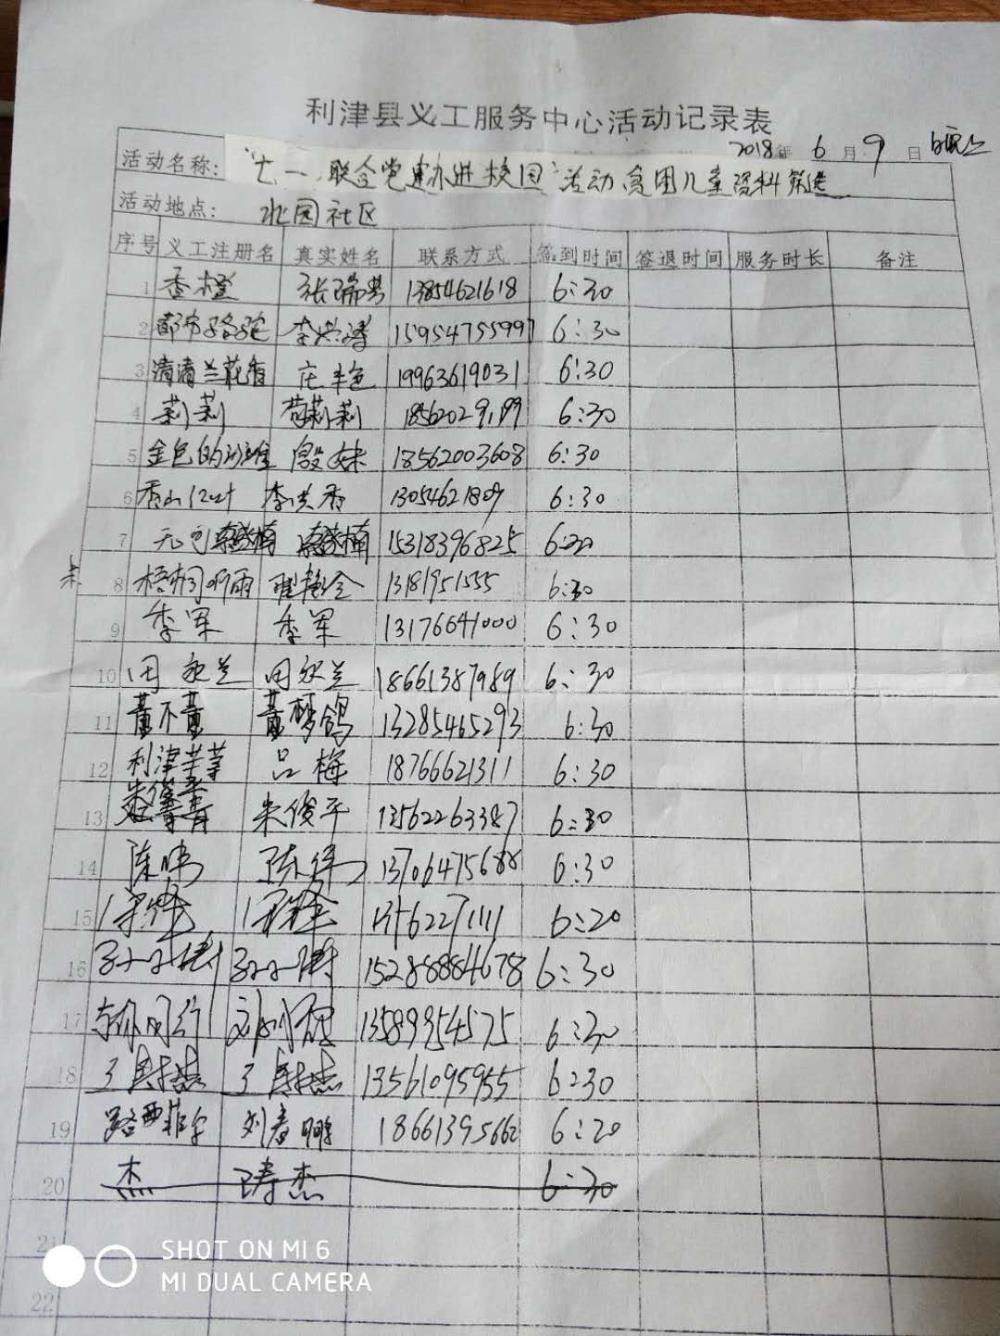 利津县义工服务中心活动记录表
2018年 6月 9日
活动名称: "七一联合党建办进校园"活动贫困儿童资料筛选
活动地点: 北园社区
序号 义工注册名 真实姓名 联系方式 签到时间 签退时间 服务时长 备注
1 香橙 张瑞芳 13854621618 6:30
2 都市骆驼 李洪涛 15954755997 6:30
3 清清兰花香 庄丰色 19963619031 6:30
4 莉莉 苟莉莉 6:30
5 金色的沙滩 殷妹 18562003608 6:30
6 香山红叶 李洪香 13054621809 6:30
7 15318396825
8 梧桐听雨 13181951555 6:30
9 季军 季军 13176641000 6:30
10 田永兰 田永兰 18661387989 6:30
11 董不董 董梦鸽 13285465293 6:30
12 利津芊芊 吕梅 18766621311 6:30
13 朱俊平 13562263387 6:30
14 陈伟 陈伟 13706475688 6:30
15 6:20
16 15288884678 6:30
17 与你同行 13589954575 6:30
18 13561095955 6:30
19 路西菲尔 刘春鹏 18661395662 6:20
20 杰 涛杰 6:30
21
22
SHOT ON MI 6
MI DUAL CAMERA